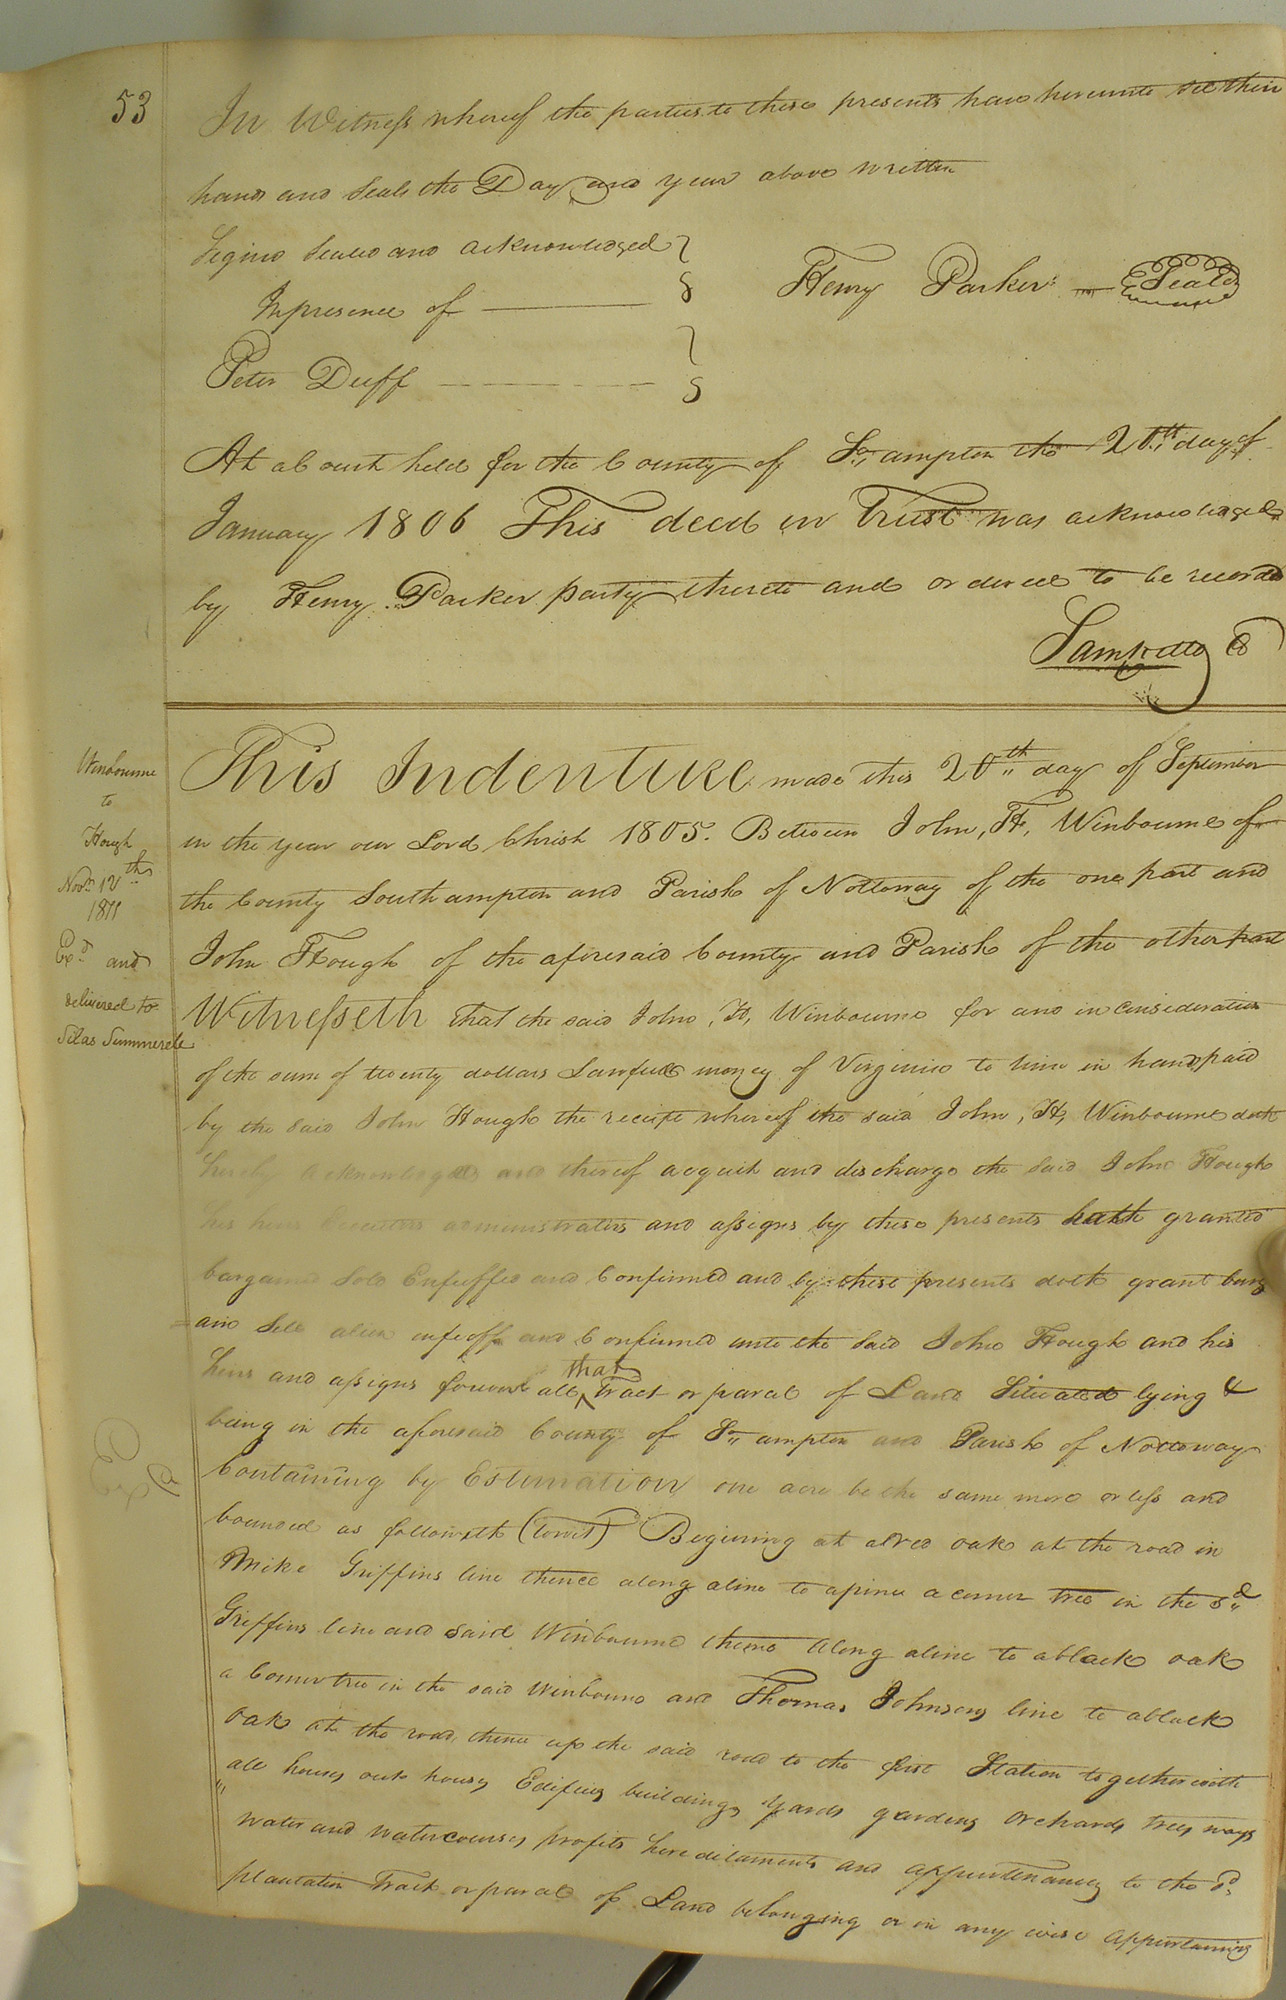 53
In Witness whereof the parties to these presents have hereunto set their
hands and Seals the Day and year above written
Signed Sealed and acknowledged
In presence of
Henry Parker Seal
Peter Duff
At a Court held for the County of So,,ampton the 20th day of
January 1806 This deed in Trust was acknowledged
by Henry Parker party thereto and ordered to be recorded
Winbourne
to
Hough
Novr. 12th
1811
Exd. and
delivered to
Silas Summerele
This Indenture made this 20th day of September
in the year our Lord Christ 1805. Between John, H, Winbourne of
the County Southampton and Parish of Nottoway of the one part and
John Hough of the aforesaid County and Parish of the other part
Witnesseth that the said John, H, Winbourne for and in Consideration
of the sum of twenty dollars Lawfull money of Virginia to him in hand paid
by the said John Hough the receipt whereof the said John, H, Winbourne doth
hereby acknowledge and thereof acquit and discharge the said John Hough
his heirs Executors administrators and assigns by these presents hath granted
bargained Sold Enfeffed and Confirmed and by these presents doth grant barg
=ain Sell alien enfeoff and Confirmed unto the Said John Hough and his
heirs and assigns forever all that Tract or parcel of Land Situated lying &
being in the aforesaid County of So,,ampton and Parish of Nottoway
Containing by Estimation one acre be the same more or less and
bounded as followeth (towit) Begining at a Red oak at the road in
Mike Griffins line thence along a line to a pine a corner tree in the sd
Griffins line and said Winbourne thence along a line to a black oak
a Corner tree in the said Winbourne and Thomas Johnsons line to a black
oak at the road, thence up the said road to the first Station together with
all houses out houses Edifices buildings yards gardens orchards trees ways
water and watercourses profits hereditaments and appurtenances to the sd.
plantation Tract or parcel of Land belonging or in any wise appertaining